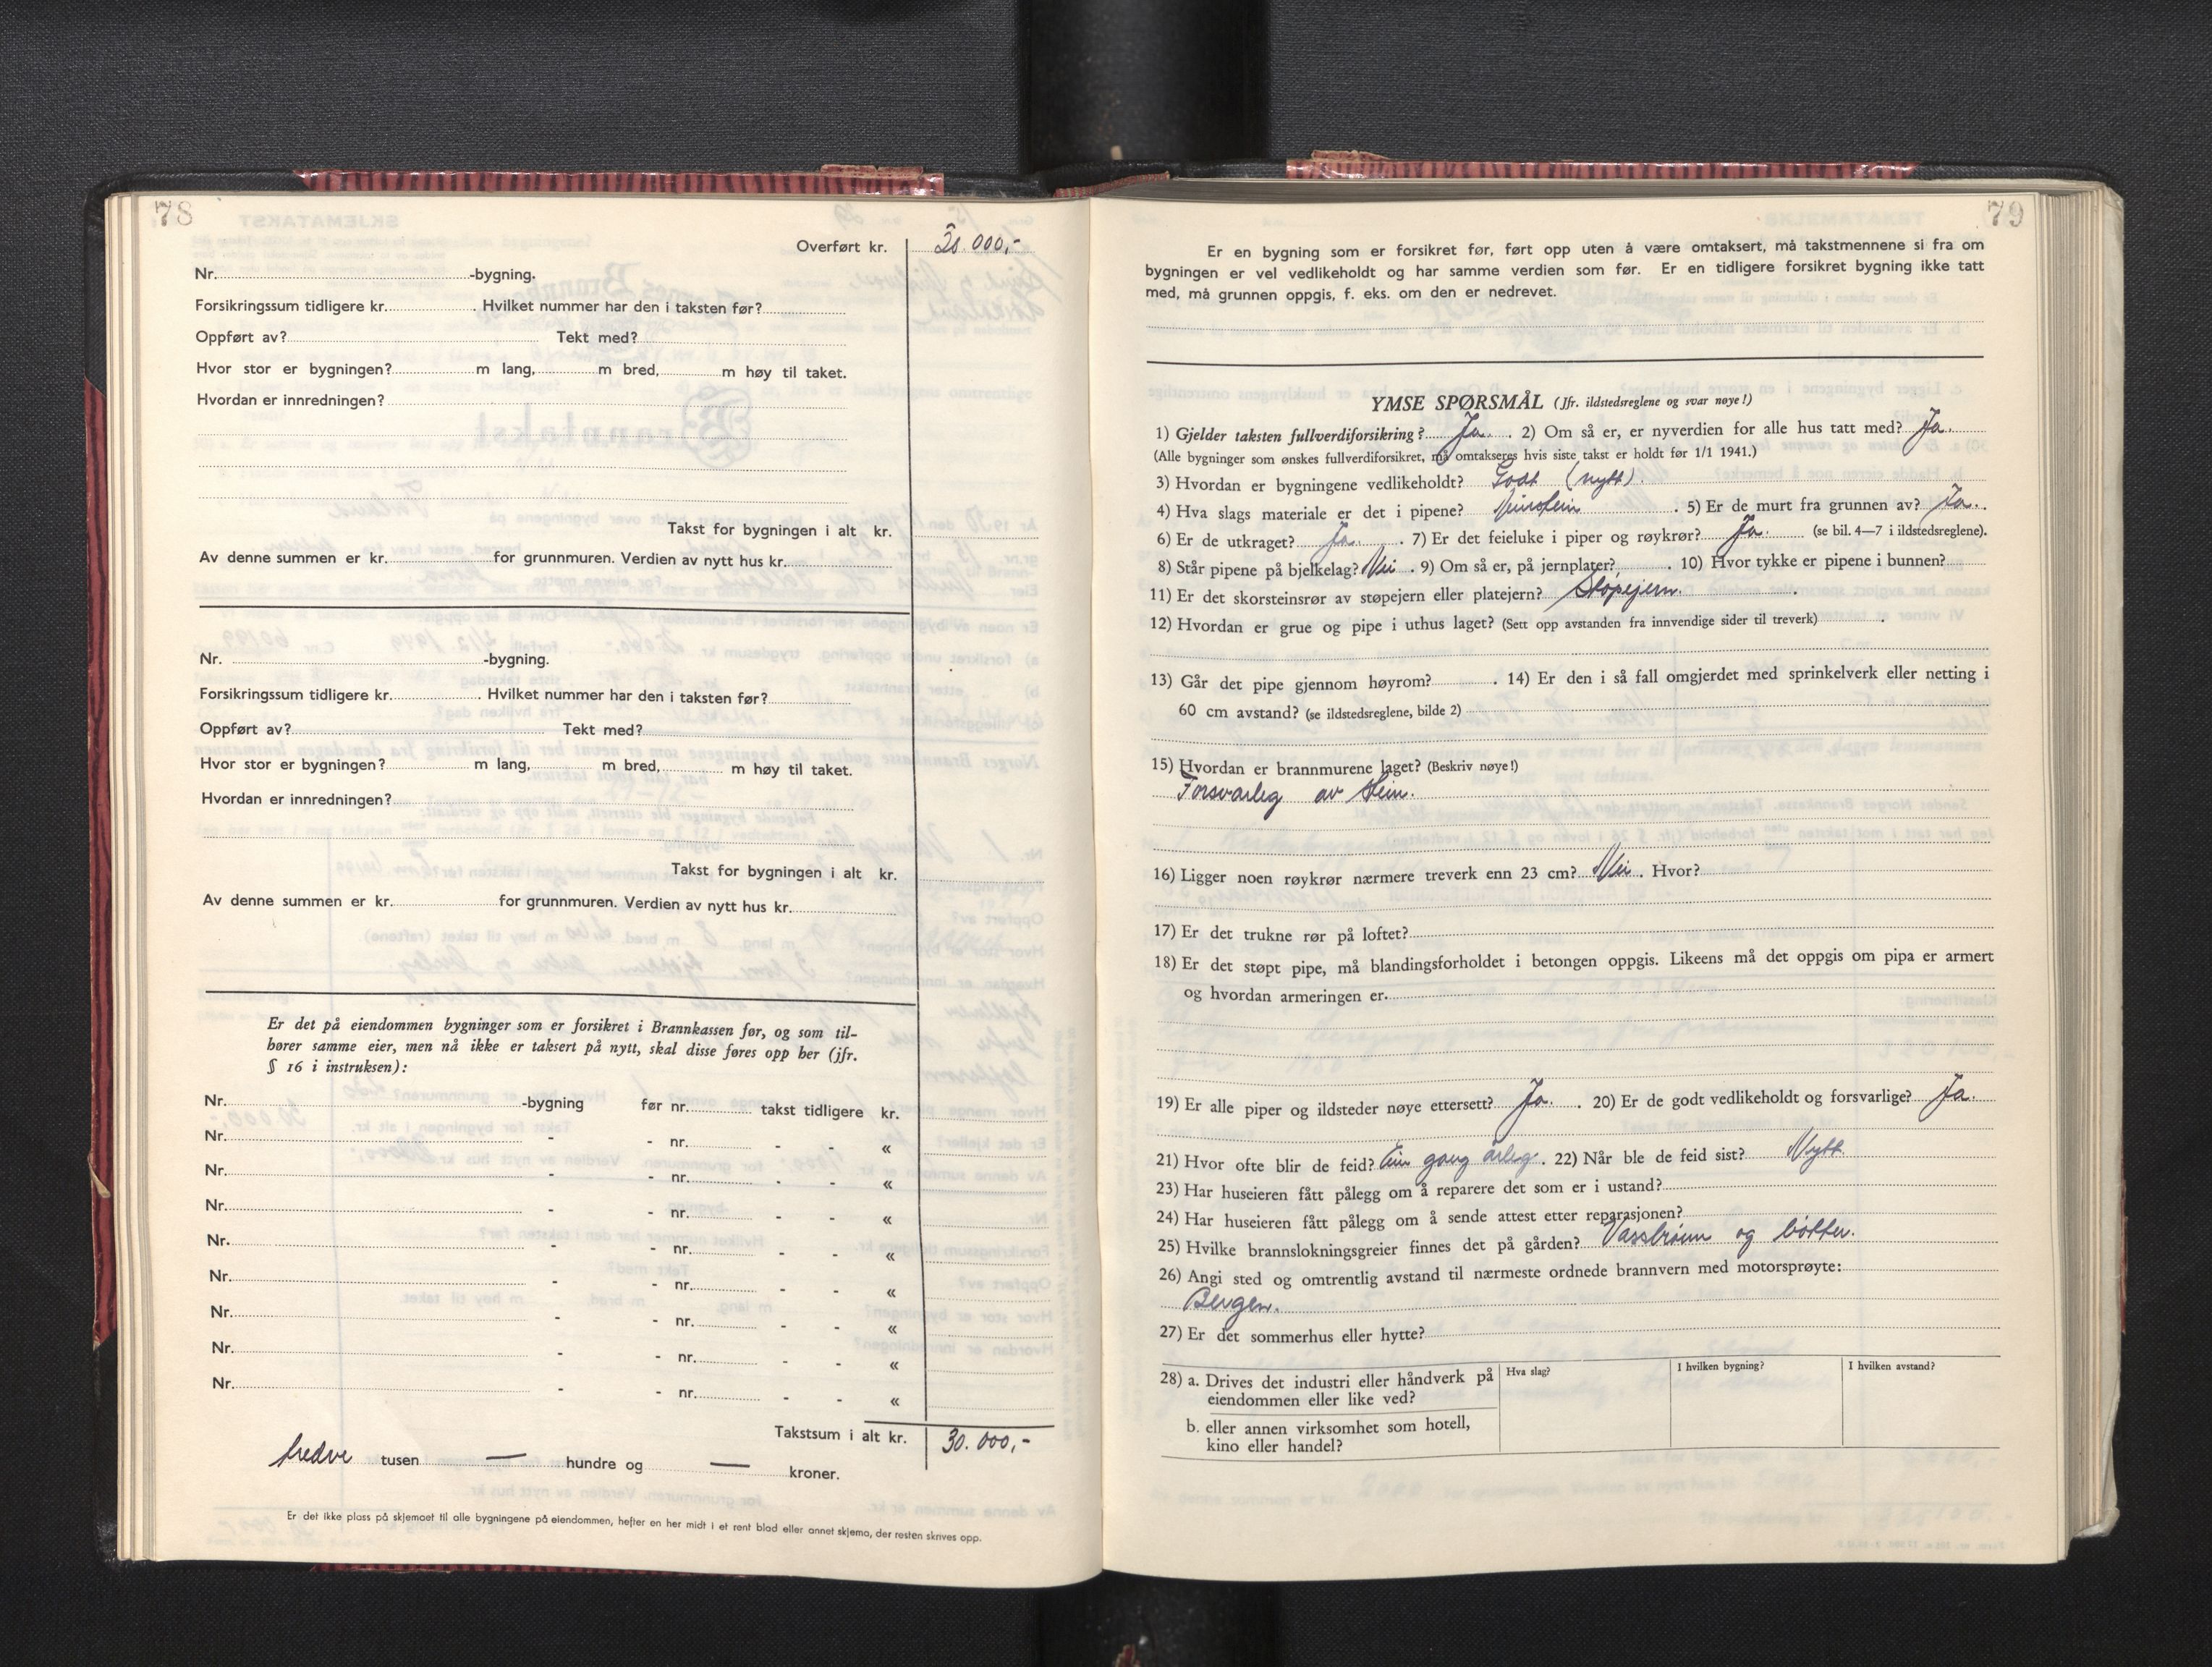 78
Overført kr. 30.000,-
Nr. -bygning.
Forsikringssum tidligere kr. . Hvilket nummer har den i taksten før?
Oppført av? Tekt med?
Hvor stor er bygningen? m lang, m bred, m høy til taket.
Hvordan er innredningen?
Takst for bygningen i alt kr.
Av denne summen er kr. for grunnmuren. Verdien av nytt hus kr.
Nr. -bygning.
Forsikringssum tidligere kr. . Hvilket nummer har den i taksten før?
Oppført av? Tekt med?
Hvor stor er bygningen? m lang, m bred, m høy til taket.
Hvordan er innredningen?
Takst for bygningen i alt kr.
Av denne summen er kr. for grunnmuren. Verdien av nytt hus kr.
Er det på eiendommen bygninger som er forsikret i Brannkassen før, og som til-
hører samme eier, men nå ikke er taksert på nytt, skal disse føres opp her (jfr.
§ 16 i instruksen):
Nr. -bygning før nr. takst tidligere kr.
Nr. - - nr. - - «
Nr. - - nr. - - «
Nr. - - nr. - - «
Nr. - - nr. - - «
Nr. - - nr. - - «
Nr. - - nr. - - «
Nr. - - nr. - - «
Nr. - - nr. - - «
Takstsum i alt kr. 30.000,-
tredve tusen — hundre og — kroner.
Er det ikke plass på skjemaet til alle bygningene på eiendommen, hefter en her midt i et rent blad eller annet skjema, der resten skrives opp.
79
Er en bygning som er forsikret før, ført opp uten å være omtaksert, må takstmennene si fra om
bygningen er vel vedlikeholdt og har samme verdien som før. Er en tidligere forsikret bygning ikke tatt
med, må grunnen oppgis, f. eks. om den er nedrevet.
YMSE SPØRSMÅL (Jfr. ildstedsreglene og svar nøye!)
1) Gjelder taksten fullverdiforsikring? Ja. . 2) Om så er, er nyverdien for alle hus tatt med? Ja.
(Alle bygninger som ønskes fullverdiforsikret, må omtakseres hvis siste takst er holdt før 1/1 1941.)
3) Hvordan er bygningene vedlikeholdt? Godt (nytt).
4) Hva slags materiale er det i pipene? . 5) Er de murt fra grunnen av? Ja.
6) Er de utkraget? Ja. . 7) Er det feieluke i piper og røykrør? Ja. (se bil. 4—7 i ildstedsreglene).
8) Står pipene på bjelkelag? Nei . 9) Om så er, på jernplater? . 10) Hvor tykke er pipene i bunnen?
11) Er det skorsteinsrør av støpejern eller platejern? Støpejern.
12) Hvordan er grue og pipe i uthus laget? (Sett opp avstanden fra innvendige sider til treverk) .
13) Går det pipe gjennom høyrom? . 14) Er den i så fall omgjerdet med sprinkelverk eller netting i
60 cm avstand? (se ildstedsreglene, bilde 2)
15) Hvordan er brannmurene laget? (Beskriv nøye!)
Forsvarleg av stein.
16) Ligger noen røykrør nærmere treverk enn 23 cm? Nei . Hvor?
17) Er det trukne rør på loftet?
18) Er det støpt pipe, må blandingsforholdet i betongen oppgis. Likeens må det oppgis om pipa er armert
og hvordan armeringen er.
19) Er alle piper og ildsteder nøye ettersett? Ja. . 20) Er de godt vedlikeholdt og forsvarlige? Ja.
21) Hvor ofte blir de feid? Ein gong årleg . 22) Når ble de feid sist? Nytt
23) Har huseieren fått pålegg om å reparere det som er i ustand?
24) Har huseieren fått pålegg om å sende attest etter reparasjonen?
25) Hvilke brannslokningsgreier finnes det på gården? Vassbrønn og bøtter.
26) Angi sted og omtrentlig avstand til nærmeste ordnede brannvern med motorsprøyte:
Bergen.
27) Er det sommerhus eller hytte?
28) a. Drives det industri eller håndverk på
eiendommen eller like ved?
Hva slag?
I hvilken bygning?
I hvilken avstand?
b. eller annen virksomhet som hotell,
kino eller handel?